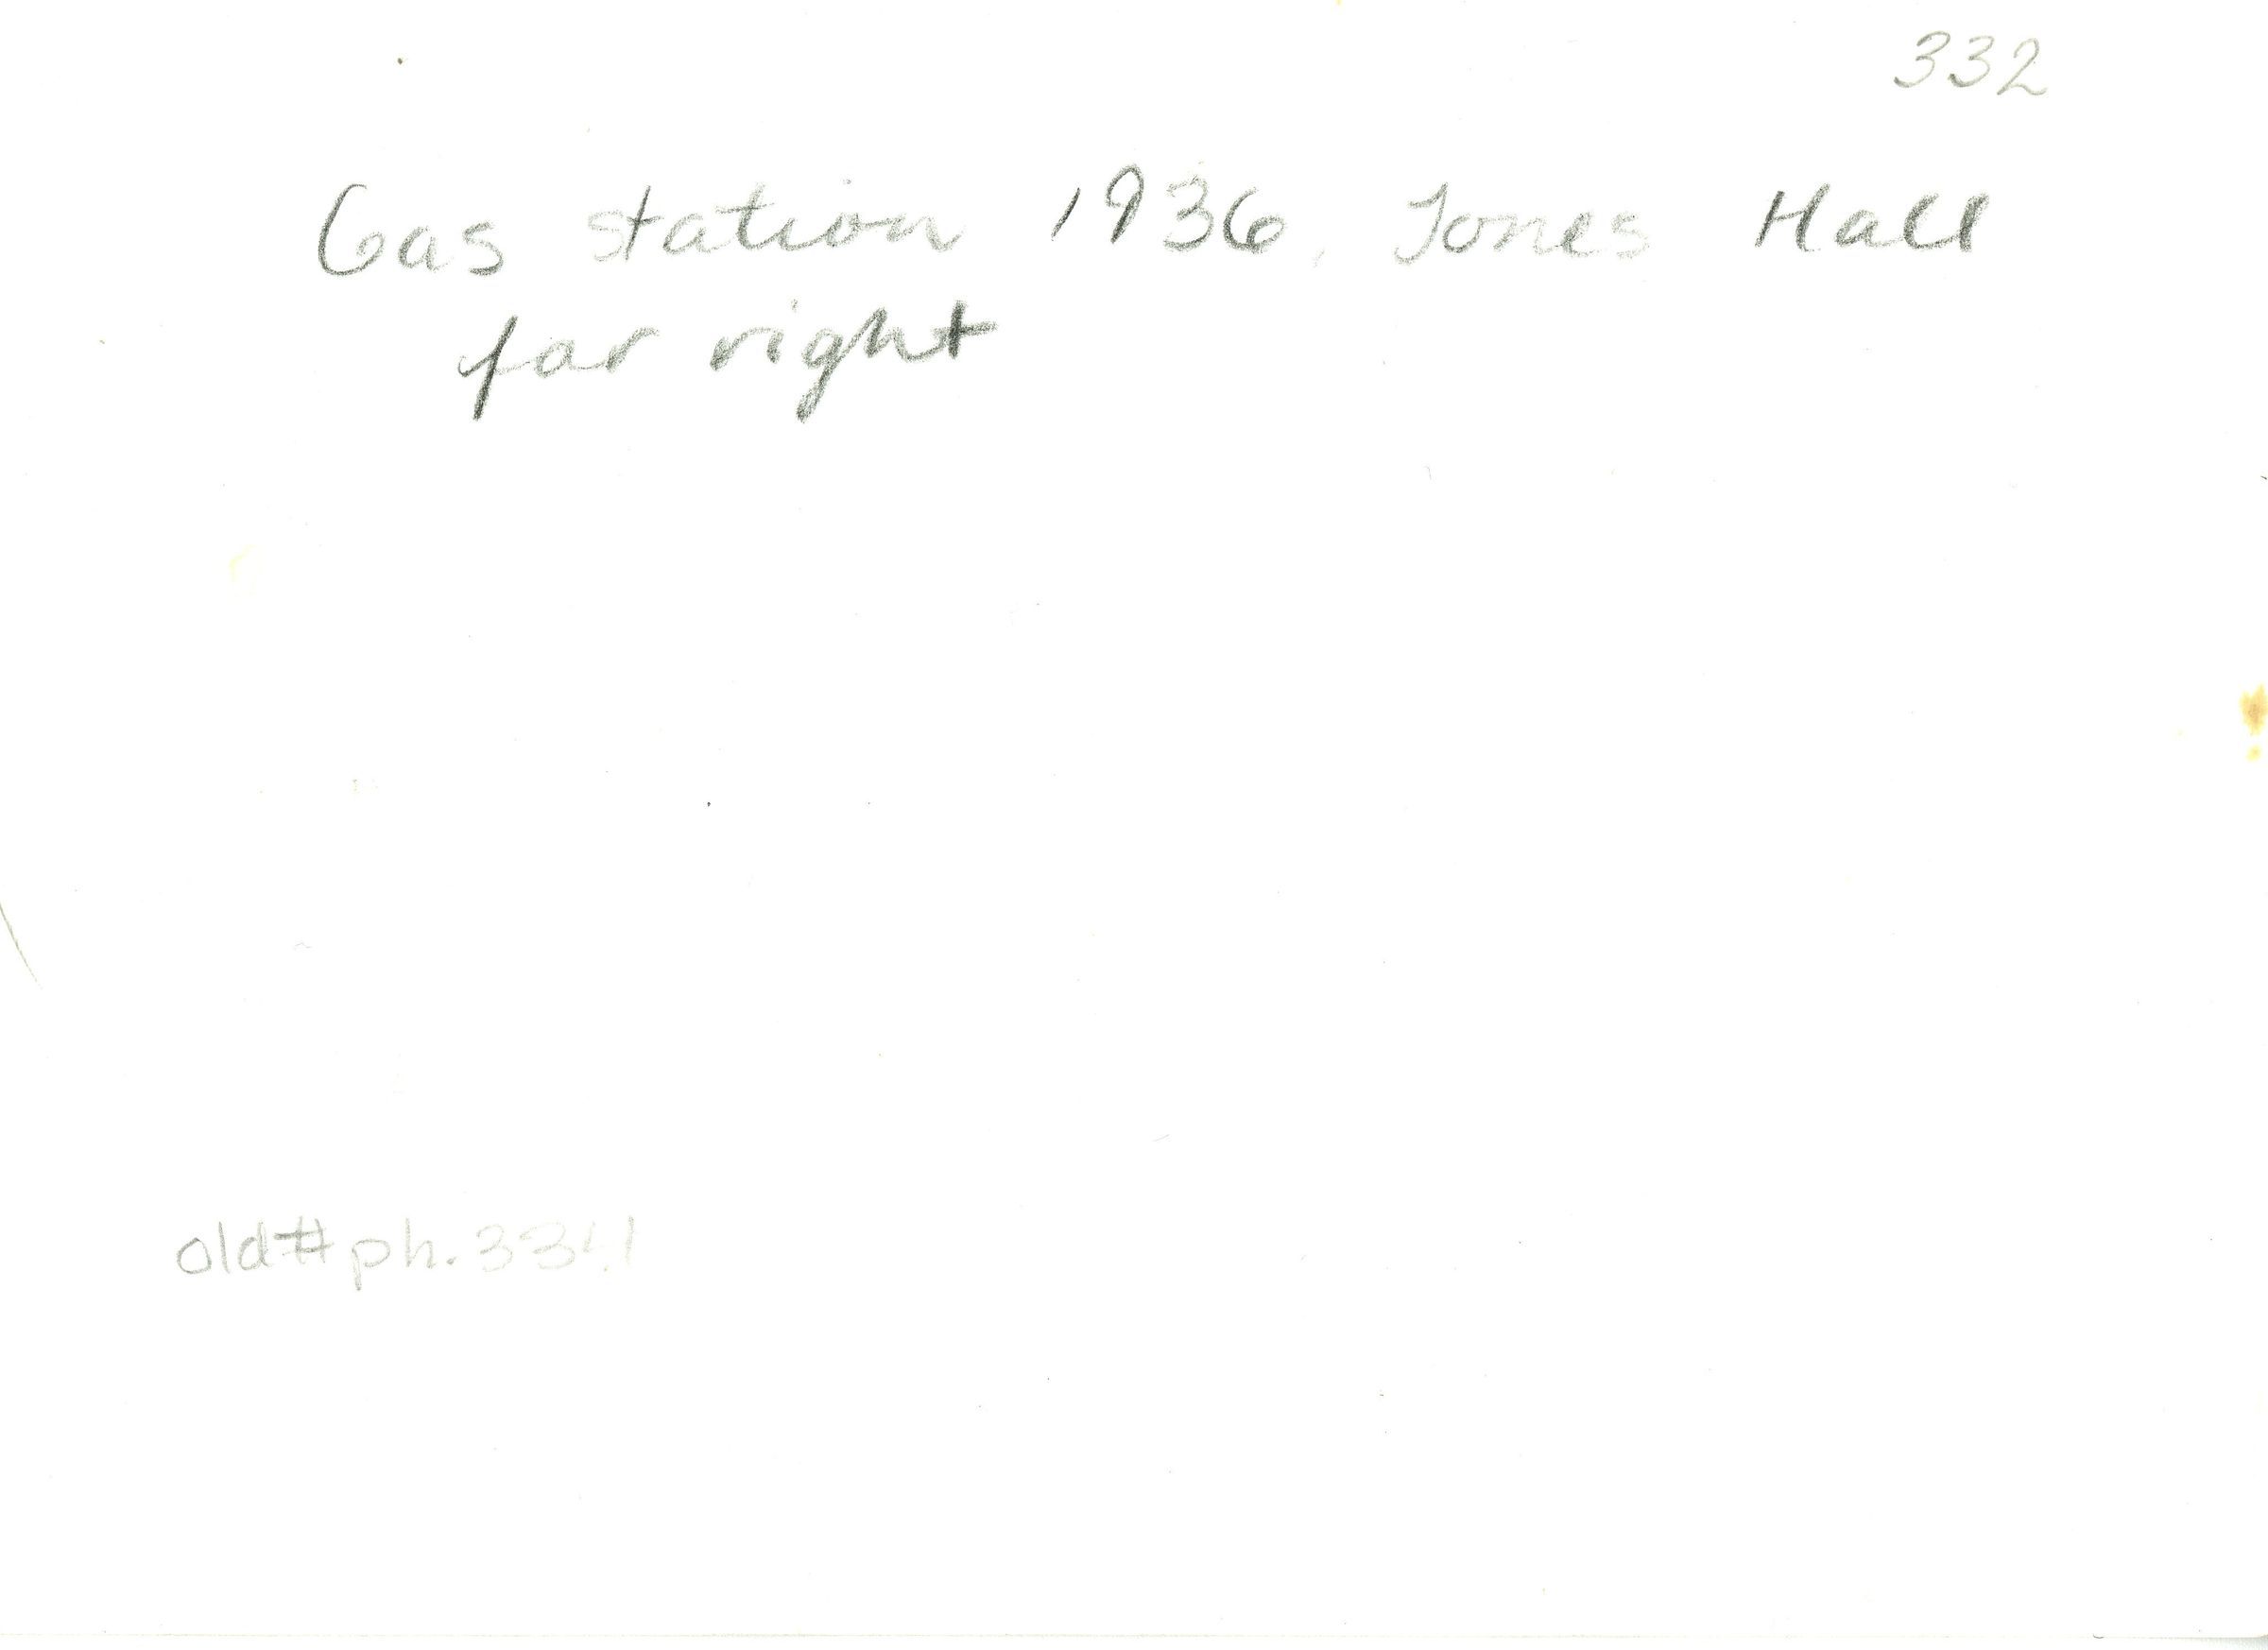 332
Gas station 1936, Jones Hall
far right
old# ph.